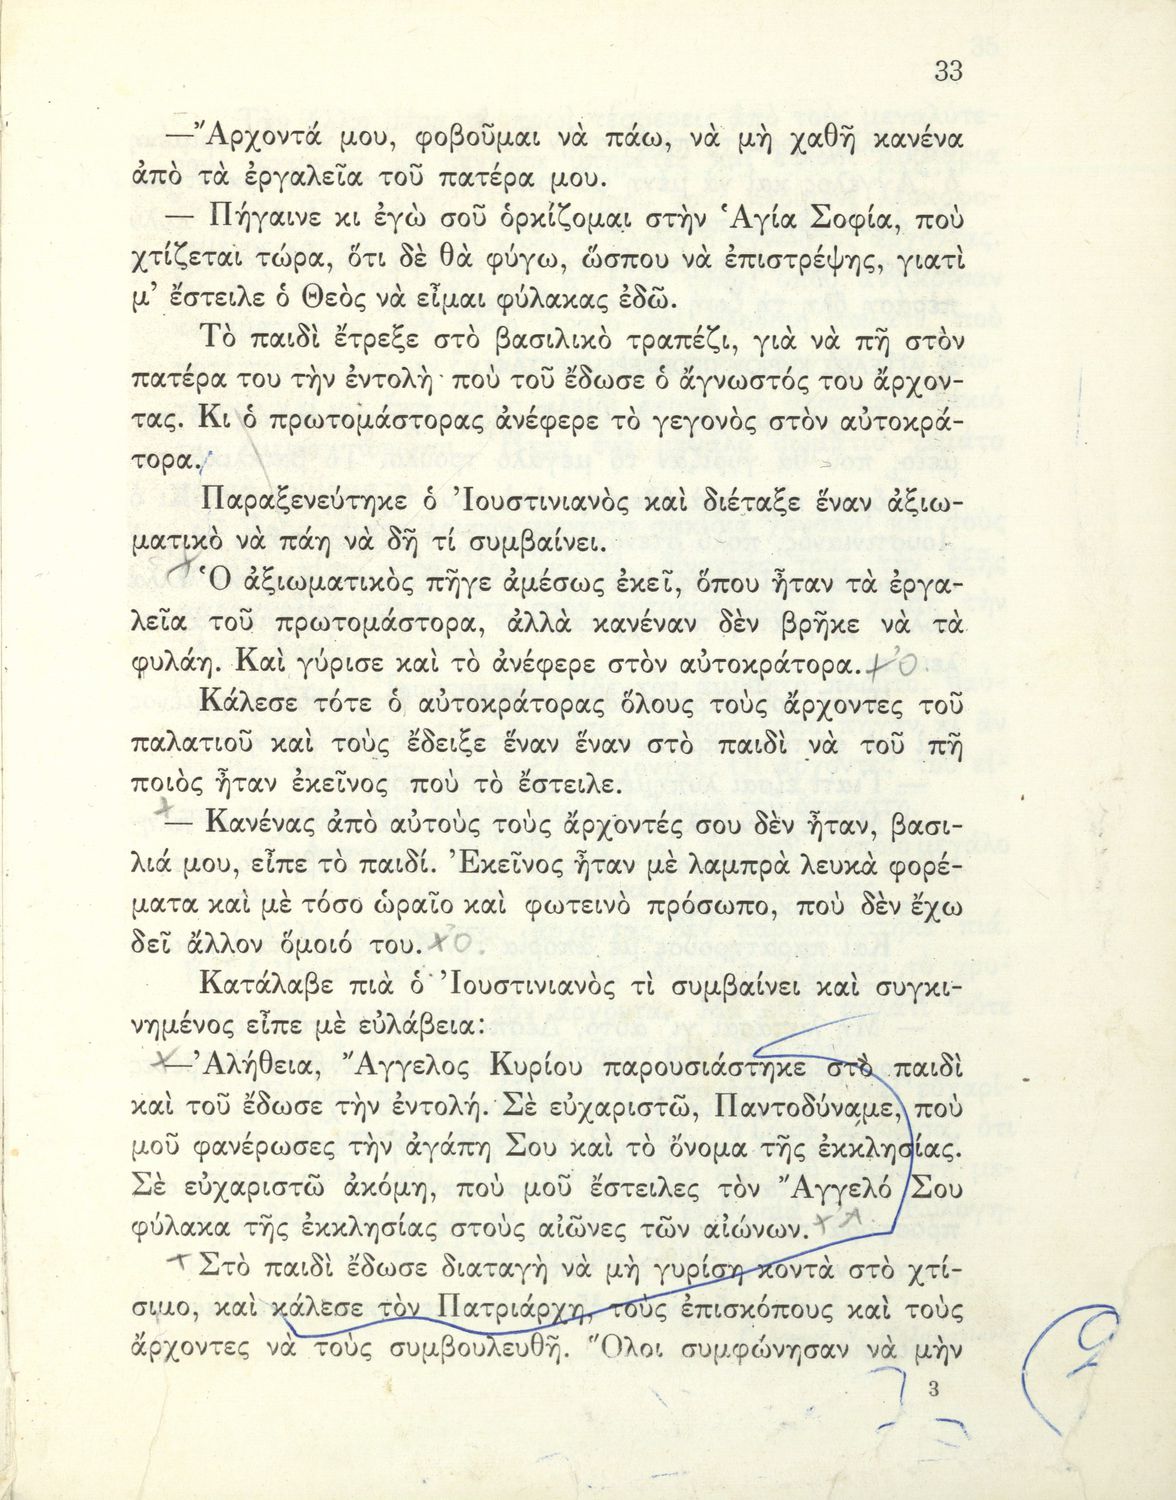 33
—Ἄρχοντά μου, φοβοῦμαι νὰ πάω, νὰ μὴ χαθῆ κανένα
ἀπὸ τὰ ἐργαλεῖα τοῦ πατέρα μου.
— Πήγαινε κι ἐγὼ σοῦ ὁρκίζομαι στὴν Ἁγία Σοφία, ποὺ
χτίζεται τώρα, ὅτι δὲ θὰ φύγω, ὥσπου νὰ ἐπιστρέψης, γιατὶ
μ’ ἔστειλε ὁ Θεὸς νὰ εἶμαι φύλακας ἐδῶ.
Τὸ παιδὶ ἔτρεξε στὸ βασιλικὸ τραπέζι, γιὰ νὰ πῆ στὸν
πατέρα του τὴν ἐντολὴ ποὺ τοῦ ἔδωσε ὁ ἄγνωστός του ἄρχον-
τας. Κι ὁ πρωτομάστορας ἀνέφερε τὸ γεγονὸς στὸν αὐτοκρά-
τορα.
Παραξενεύτηκε ὁ Ἰουστινιανὸς καὶ διέταξε ἕναν ἀξιω-
ματικὸ νὰ πάη νὰ δῆ τί συμβαίνει.
Ὁ ἀξιωματικὸς πῆγε ἀμέσως ἐκεῖ, ὅπου ἦταν τὰ ἐργα-
λεῖα τοῦ πρωτομάστορα, ἀλλὰ κανέναν δὲν βρῆκε νὰ τὰ
φυλάη. Καὶ γύρισε καὶ τὸ ἀνέφερε στὸν αὐτοκράτορα.
Κάλεσε τότε ὁ αὐτοκράτορας ὅλους τοὺς ἄρχοντες τοῦ
παλατιοῦ καὶ τοὺς ἔδειξε ἕναν ἕναν στὸ παιδὶ νὰ τοῦ πῆ
ποιὸς ἦταν ἐκεῖνος ποὺ τὸ ἔστειλε.
— Κανένας ἀπὸ αὐτοὺς τοὺς ἄρχοντές σου δὲν ἦταν, βασι-
λιά μου, εἶπε τὸ παιδί. Ἐκεῖνος ἦταν μὲ λαμπρὰ λευκὰ φορέ-
ματα καὶ μὲ τόσο ὡραῖο καὶ φωτεινὸ πρόσωπο, ποὺ δὲν ἔχω
δεῖ ἄλλον ὅμοιό του.
Κατάλαβε πιὰ ὁ Ἰουστινιανὸς τὶ συμβαίνει καὶ συγκι-
νημένος εἶπε μὲ εὐλάβεια:
—Ἀλήθεια, Ἄγγελος Κυρίου παρουσιάστηκε στὸ παιδὶ
καὶ τοῦ ἔδωσε τὴν ἐντολή. Σὲ εὐχαριστῶ, Παντοδύναμε, ποὺ
μοῦ φανέρωσες τὴν ἀγάπη Σου καὶ τὸ ὄνομα τῆς ἐκκλησίας.
Σὲ εὐχαριστῶ ἀκόμη, ποὺ μοῦ ἔστειλες τὸν Ἄγγελό Σου
φύλακα τῆς ἐκκλησίας στοὺς αἰῶνες τῶν αἰώνων.
Στὸ παιδὶ ἔδωσε διαταγὴ νὰ μὴ γυρίση κοντὰ στὸ χτί-
σιμο, καὶ κάλεσε τὸν Πατριάρχη, τοὺς ἐπισκόπους καὶ τοὺς
ἄρχοντες νὰ τοὺς συμβουλευθῆ. Ὅλοι συμφώνησαν νὰ μὴν
3